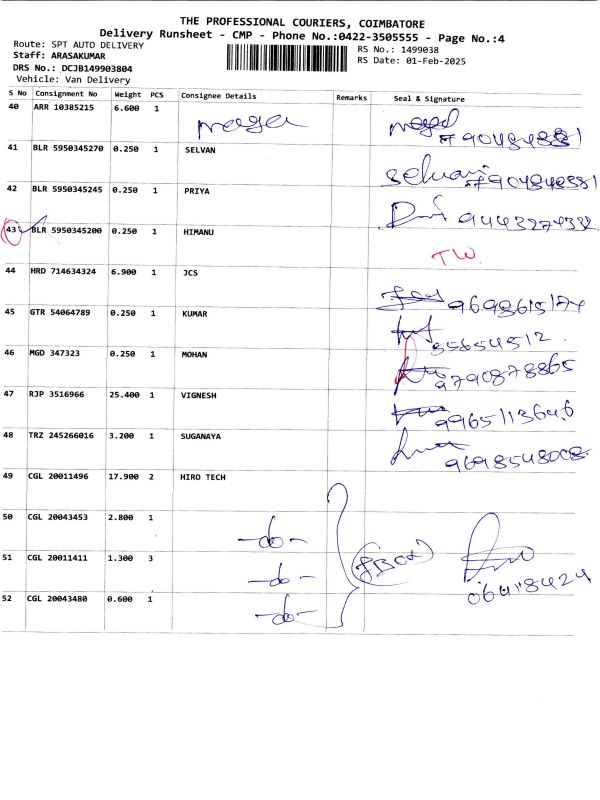 THE PROFESSIONAL COURIERS, COIMBATORE
Delivery Runsheet - CMP - Phone No.:0422-3505555 - Page No.:4
Route: SPT AUTO DELIVERY
RS No.: 1499038
Staff: ARASAKUMAR
RS Date: 01-Feb-2025
DRS No.: DCJB149903804
Vehicle: Van Delivery
S No Consignment No Weight PCS Consignee Details Remarks Seal & Signature
40 ARR 10385215 6.600 1
41 BLR 5950345270 0.250 1 SELVAN
42 BLR 5950345245 0.250 1 PRIYA
9443274332
43 BLR 5950345200 0.250 1 HIMANU
TW.
44 HRD 714634324 6.900 1 JCS
9698615174
45 GTR 54064789 0.250 1 KUMAR
46 MGD 347323 0.250 1 MOHAN
9790878865
47 RJP 3516966 25.400 1 VIGNESH
9965113646
48 TRZ 245266016 3.200 1 SUGANAYA
9698548008
49 CGL 20011496 17.900 2 HIRO TECH
50 CGL 20043453 2.800 1 -do-
51 CGL 20011411 1.300 3 -do-
52 CGL 20043480 0.600 1 -do-